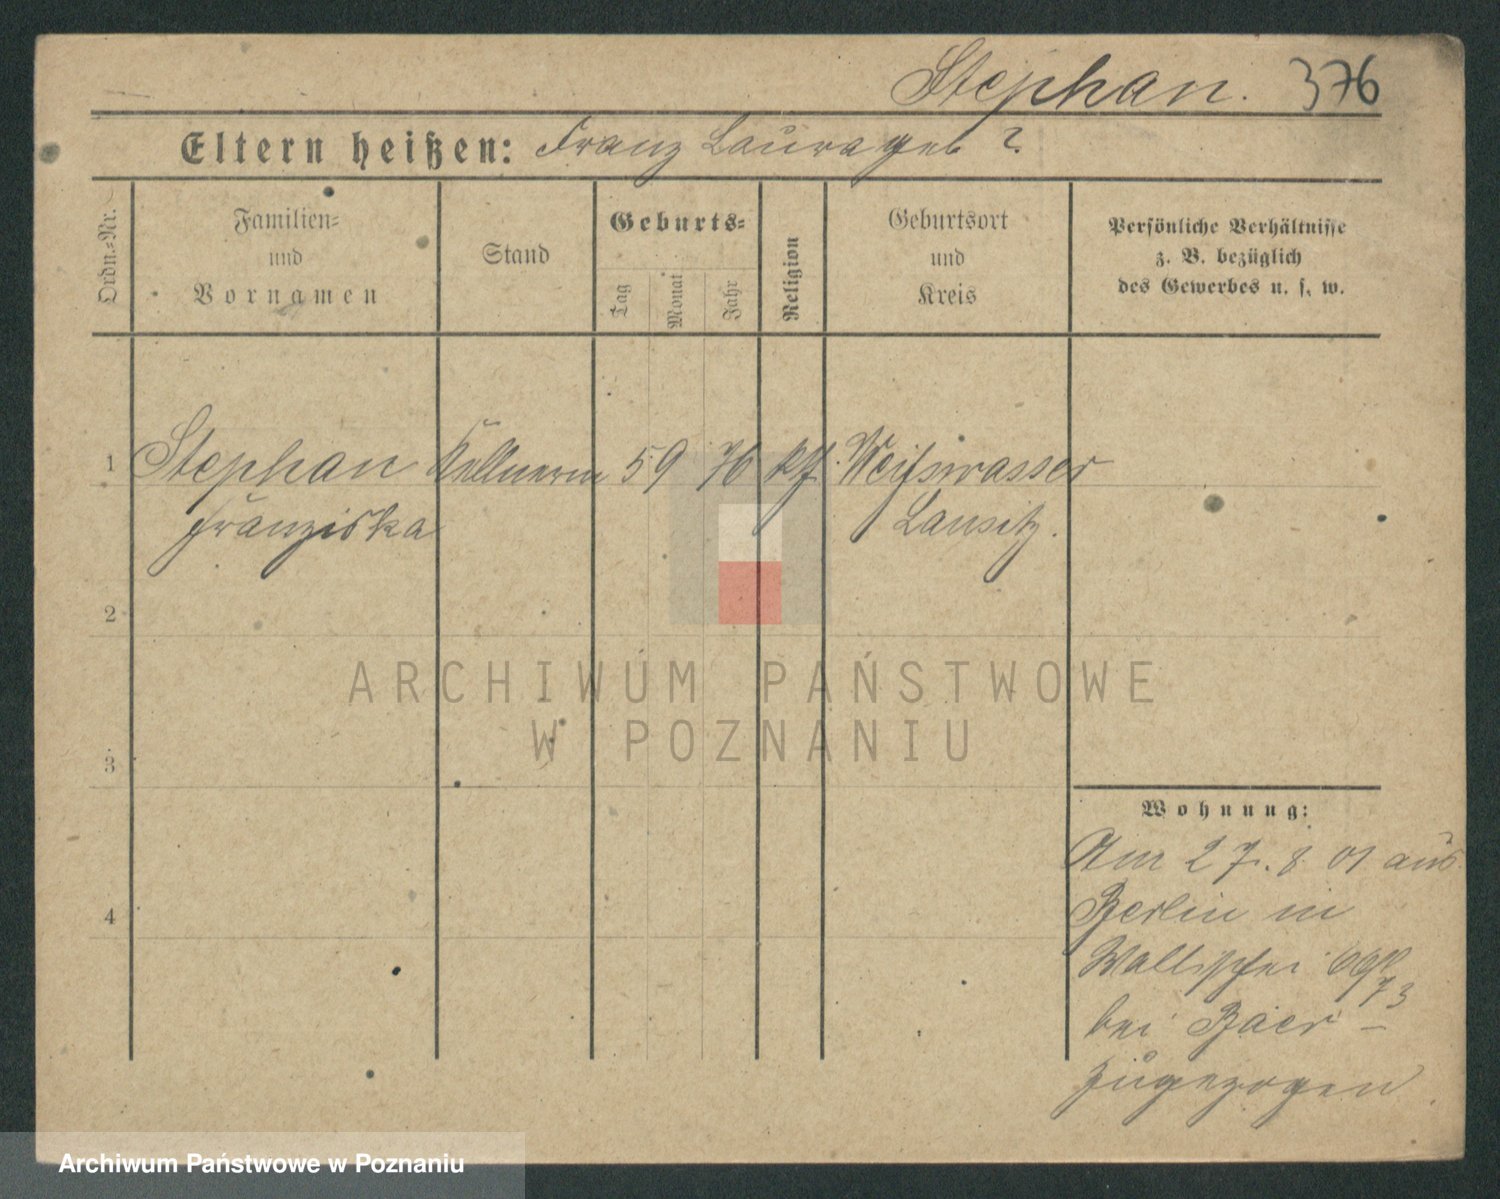 Stephan. 376
Eltern heißen: Franz Laura geb ?
Ordn.-Nr.
Familien-
und
Vornamen
Stand
Geburts-
Tag
Monat
Jahr
Religion
Geburtsort
und
Kreis
Persönliche Verhältnisse
z. B. bezüglich
des Gewerbes u. s. w.
1 Stephan Kellnerin 5 9 76 kth. Weißwasser
Franziska Lausitz.
2
ARCHIWUM PAŃSTWOWE
W POZNANIU
3
Wohnung:
Am 27. 8 01 aus
4
Berlin in
Wallischei
73
bei Baer –
zugezogen
Archiwum Państwowe w Poznaniu